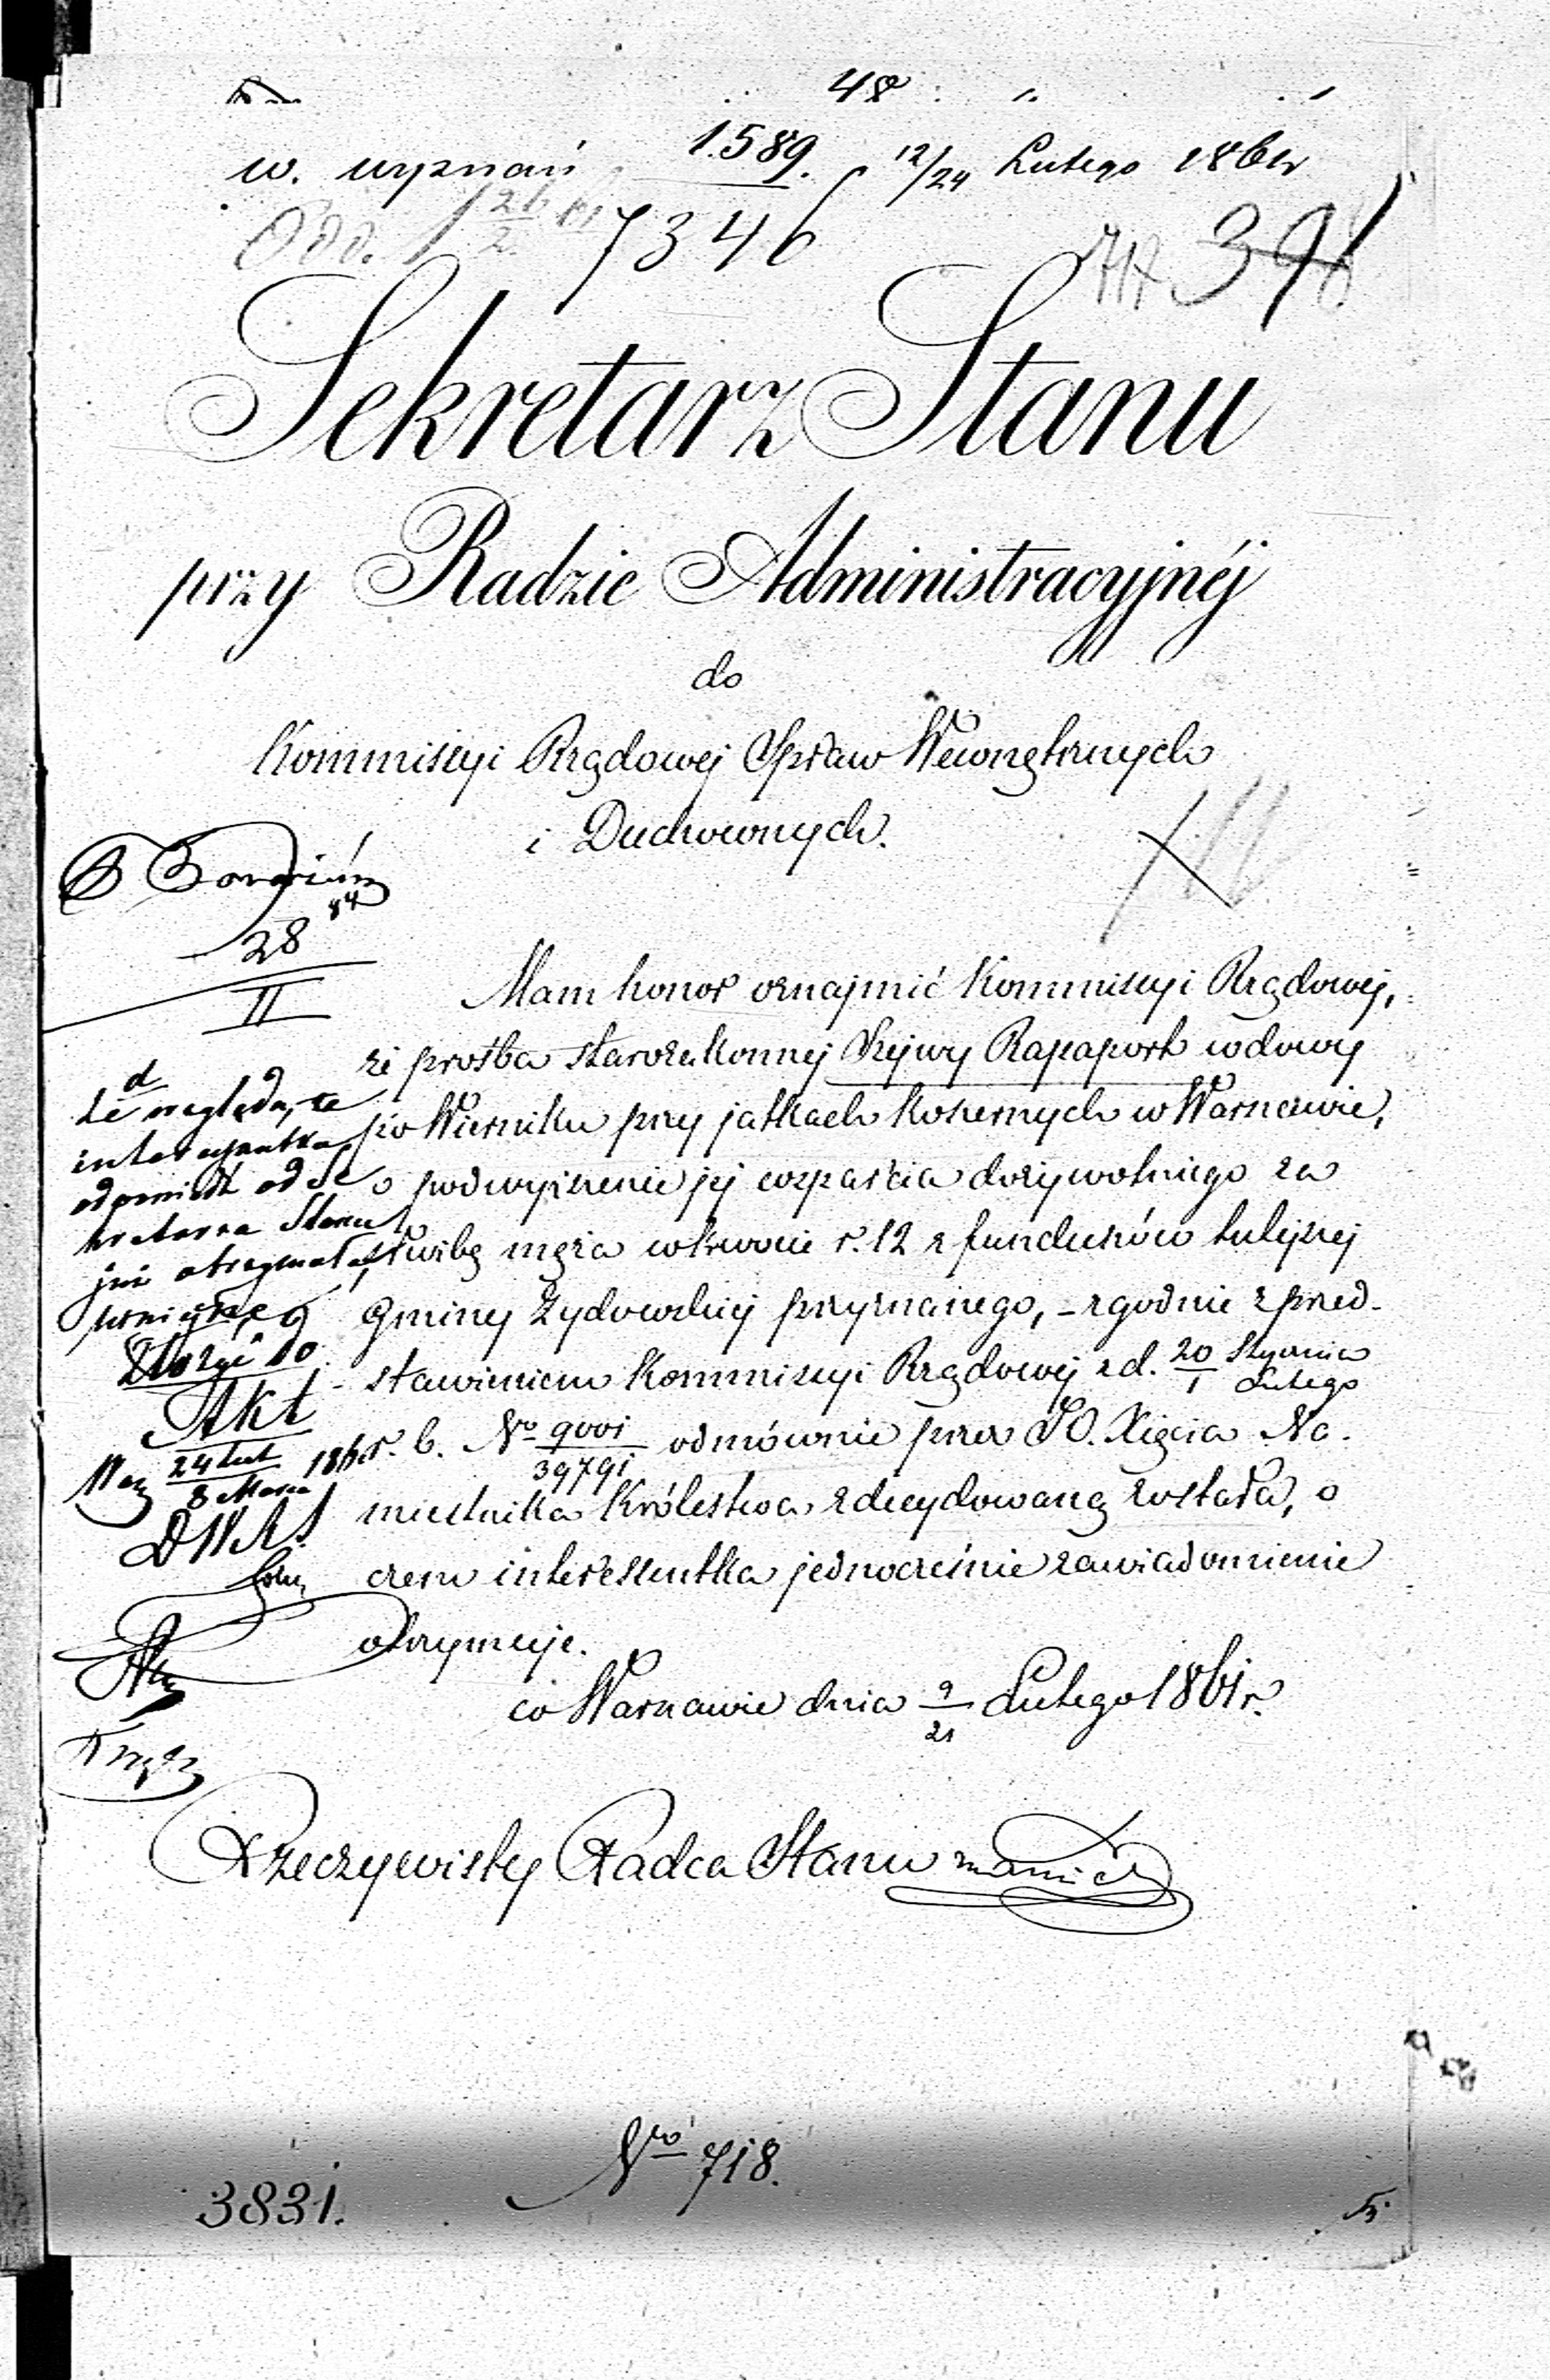 48
w. wyznań 1.589. 12/24 Lutego 1861r
Odd. 1 26/2 61 7346
398
Sekretarz Stanu
przy Radzie Administracyjnéj
do
Kommissyi Rządowej Spraw Wewnętrznych
i Duchownych.
28 84
II
Mam honor oznajmić Kommissyi Rządowej,
że prośba starozakonnej Szejwy Rapaport wdowy
po Wierniku przy jatkach koszernych w Warszawie,
o podwyższenie jej wsparcia dożywotniego za
służbę męża w kwocie r. 12 z funduszów tutejszej
Gminy Żydowskiej przyznanego, – zgodnie z przed-
stawieniem Kommissyi Rządowej z d. 20/1 Stycznia/Lutego
r. b. No 9001/39791 odmównie przez JO. Xięcia Na-
miestnika Królestwa zdecydowaną została, o
czem interessentka jednocześnie zawiadomienie
otrzymuje.
w Warszawie dnia 9/21 Lutego 1861 r.
Ze względu, że
interesantka
odpowiedź od Se
kretarza Stanu
już otrzymała,
niniejsze
Złożyć do
Akt
24 Lut/8 Marca 1861
Rzeczywisty Radca Stanu
Nro 718.
3831.